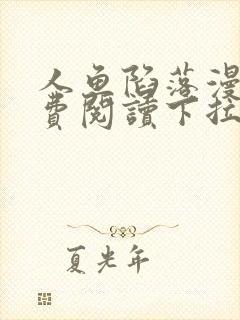 人鱼陷落漫
費閱讀下拉
夏光年